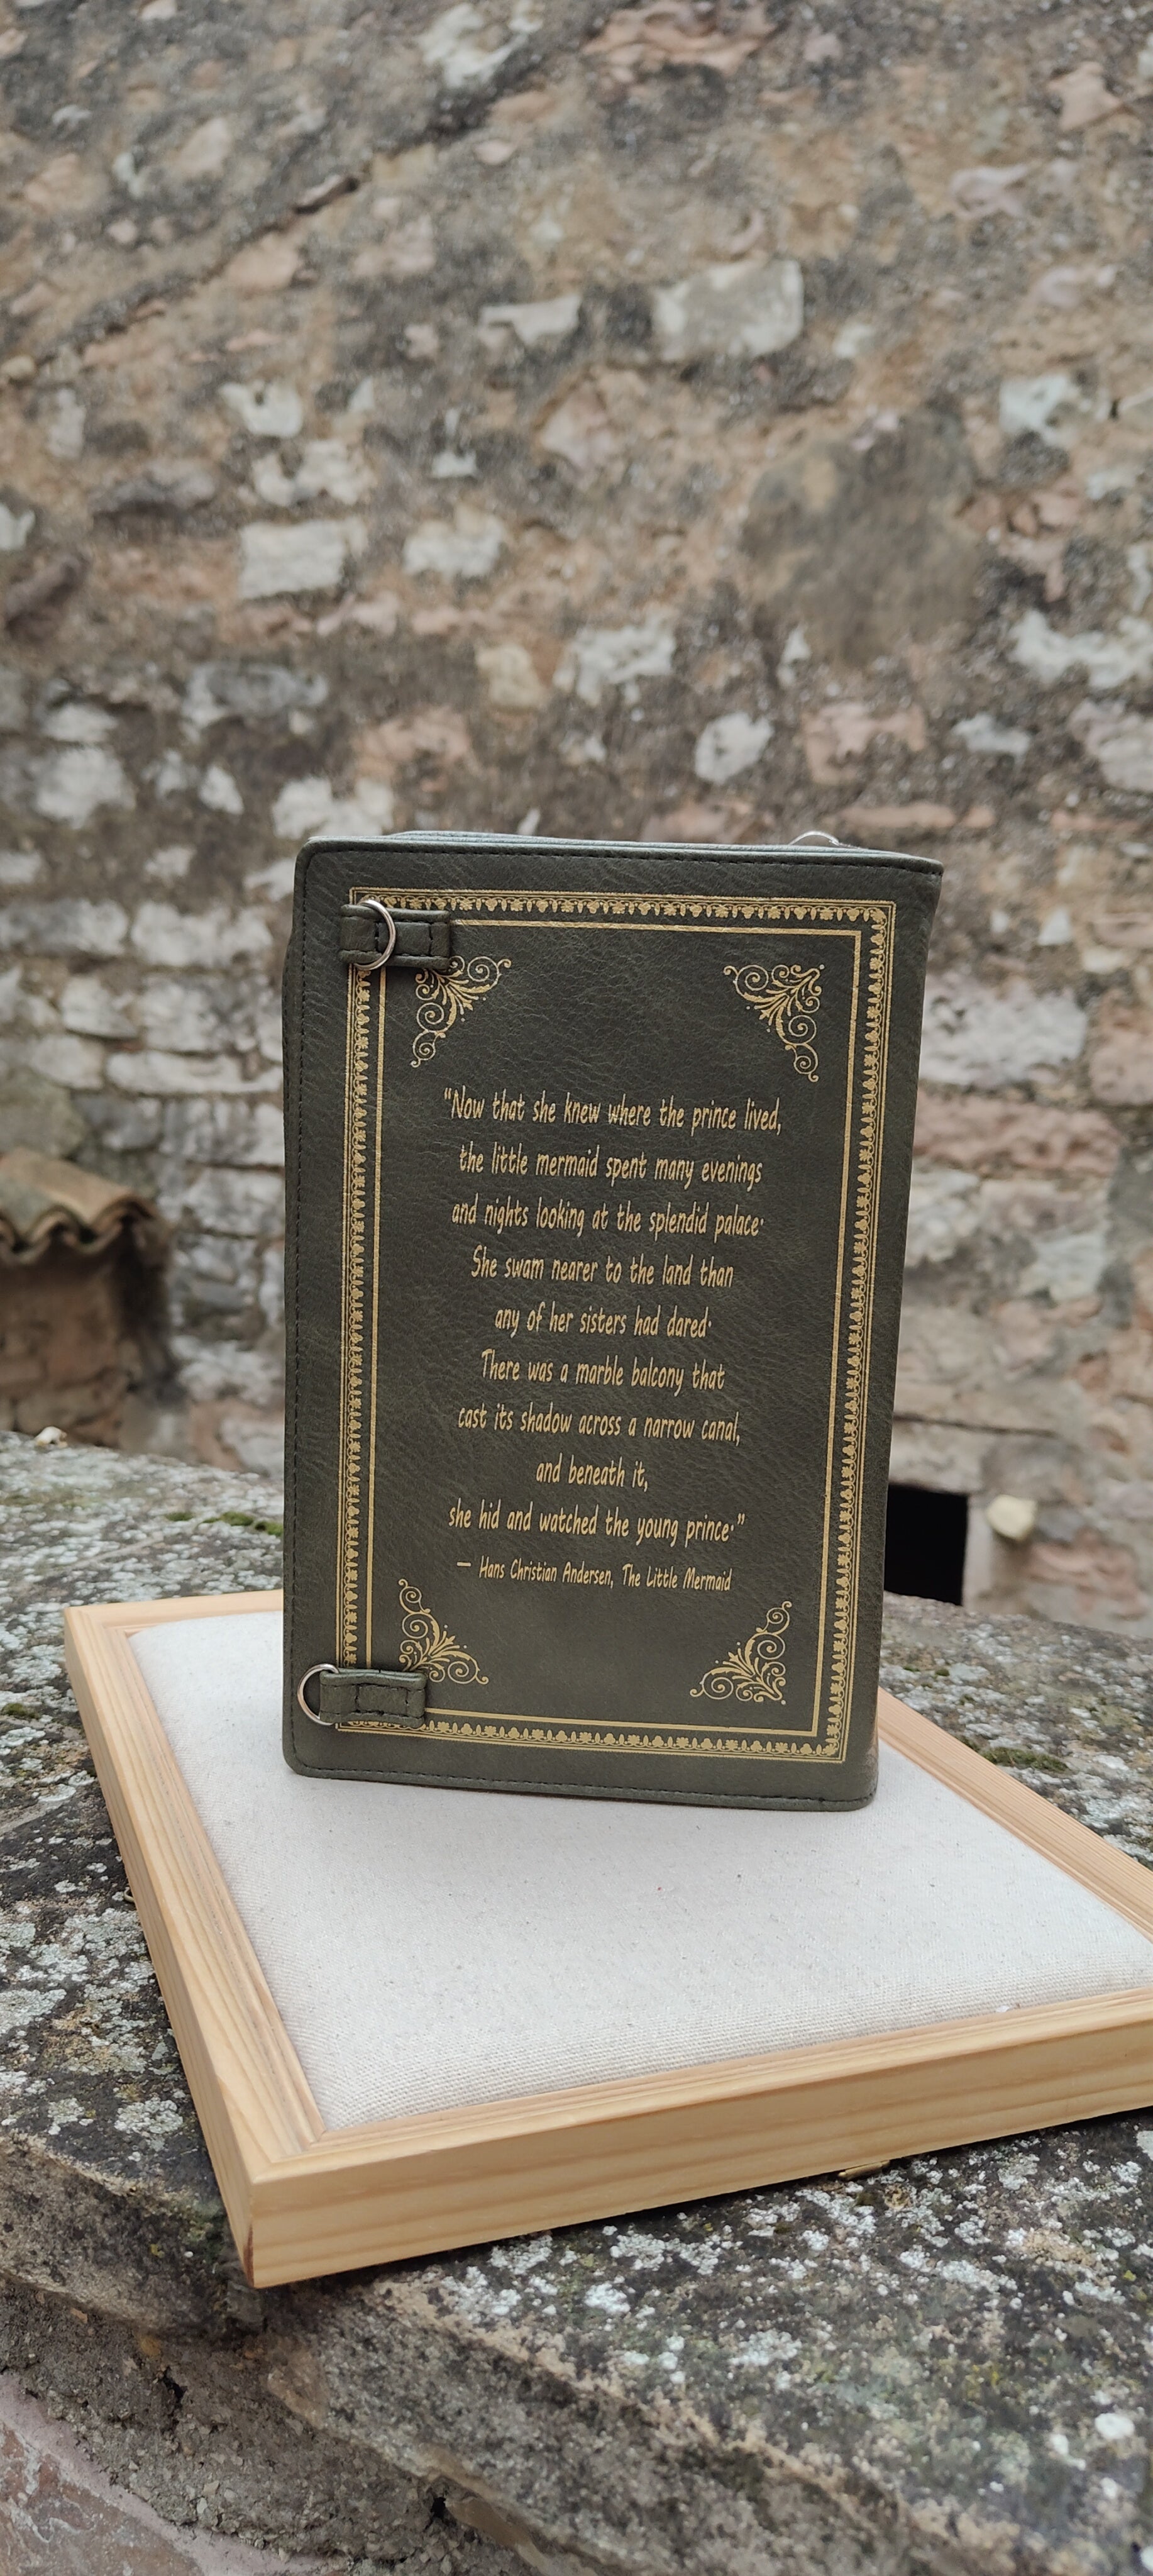 “Now that she knew where the prince lived,
the little mermaid spent many evenings
and nights looking at the splendid palace·
She swam nearer to the land than
any of her sisters had dared·
There was a marble balcony that
cast its shadow across a narrow canal,
and beneath it,
she hid and watched the young prince·”
— Hans Christian Andersen, The Little Mermaid